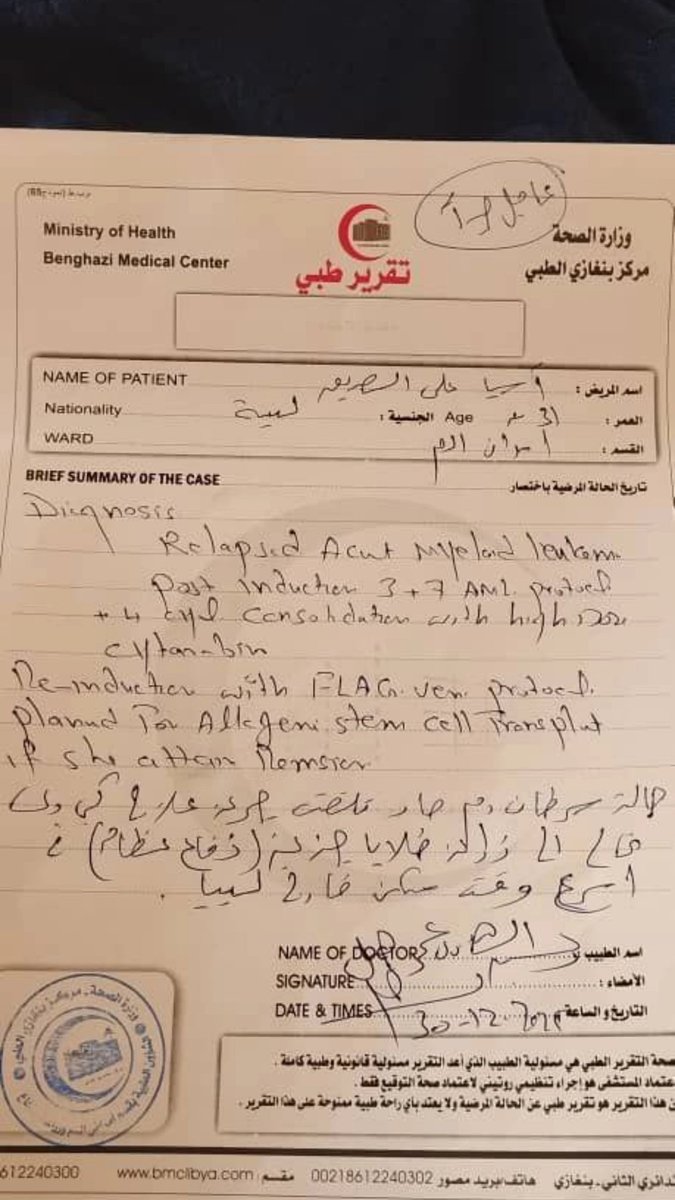 (نموذج 88)
عاجل جداً
Ministry of Health
وزارة الصحة
Benghazi Medical Center
مركز بنغازي الطبي
تقرير طبي
NAME OF PATIENT آسيا علي اسم المريض :
Nationality ليبية الجنسية : Age 31 سنة العمر :
WARD أمراض الدم القسم :
BRIEF SUMMARY OF THE CASE تاريخ الحالة المرضية باختصار
Diagnosis
Relapsed Acut Myeloid leukem
post induction 3+7 AML protocol
+ 4 cycl consolidation with high Dose
cytarabin
Re-induction with FLAG.ven. protocol.
planned For Allogeni stem cell Transplant
if she attain Remsion
حالة سرطان دم حاد تلقت جرعة علاج كيماوي
تحتاج الى زراعة خلايا جذعية (نخاع عظام) في
أسرع وقت ممكن خارج ليبيا .
NAME OF DOCTOR اسم الطبيب :
SIGNATURE الأمضاء :
DATE & TIMES 30-12- التاريخ و الساعة
صحة التقرير الطبي هي مسئولية الطبيب الذي أعد التقرير مسئولية قانونية وطبية كاملة .
عتماد المستشفى هو إجراء تنظيمي روتيني لاعتماد صحة التوقيع فقط .
ن هذا التقرير هو تقرير طبي عن الحالة المرضية ولا يعتد بأي راحة طبية ممنوحة على هذا التقرير .
وزارة الصحة - مركز بنغازي الطبي
لدائري الثاني - بنغازي هاتف/بريد مصور 00218612240302 مقسم www.bmclibya.com 612240300